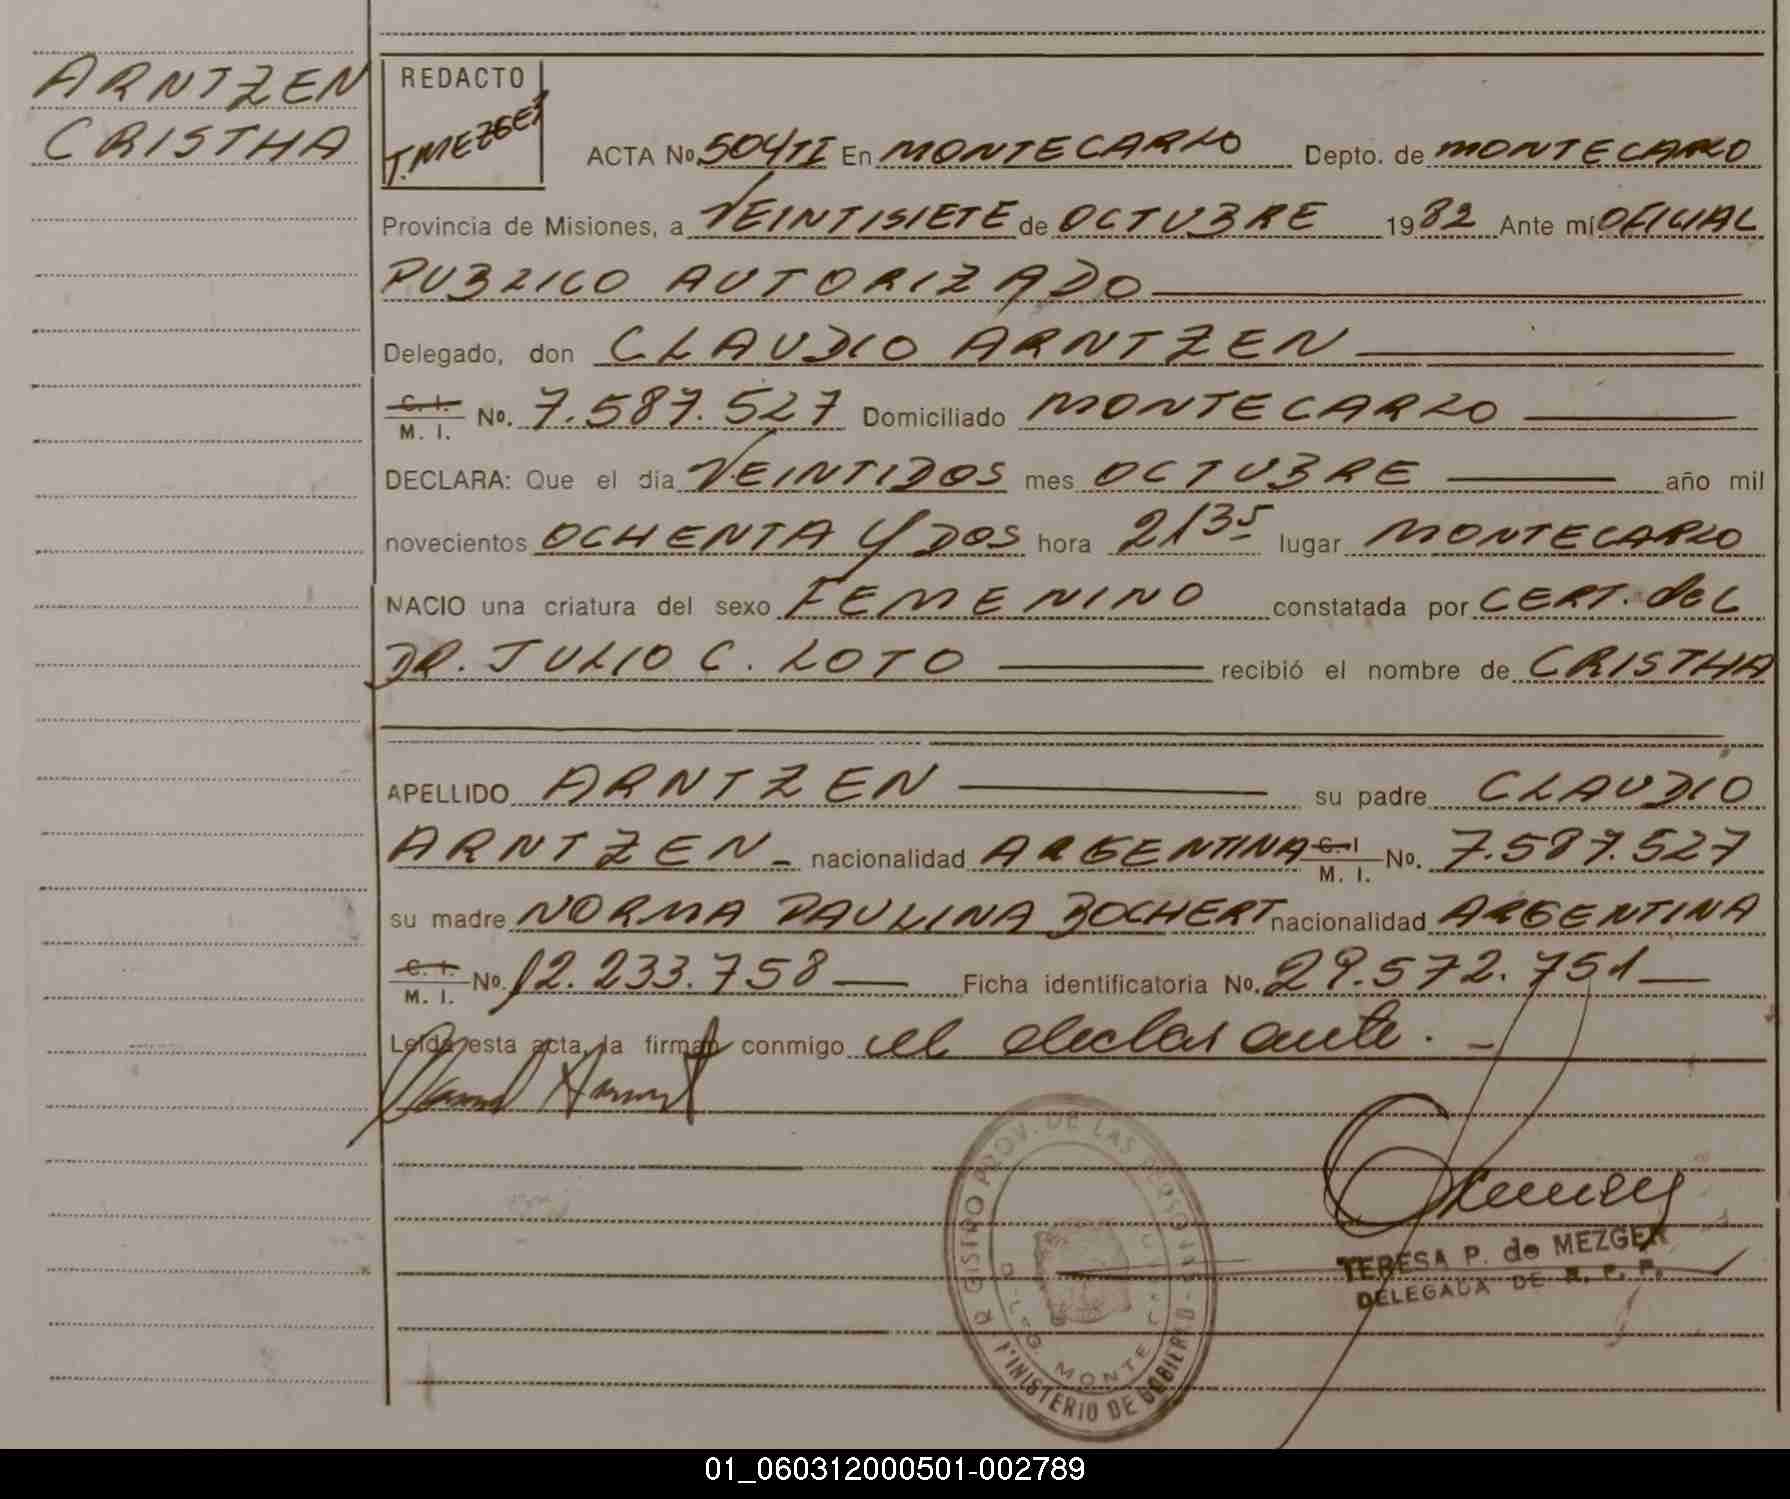 ARNTZEN
CRISTHA
REDACTO
T. MEZGER
ACTA No 504 TII En MONTECARLO Depto. de MONTECARLO
Provincia de Misiones, a VEINTISIETE de OCTUBRE 1982 Ante mí OFICIAL
PUBLICO AUTORIZADO
Delegado, don CLAUDIO ARNTZEN
C. I.
M. I. No. 7.587.527 Domiciliado MONTECARLO
DECLARA: Que el día VEINTIDOS mes OCTUBRE año mil
novecientos OCHENTA Y DOS hora 2135 lugar MONTECARLO
NACIO una criatura del sexo FEMENINO constatada por CERT. del
DR. JULIO C. LOTO recibió el nombre de CRISTHA
APELLIDO ARNTZEN su padre CLAUDIO
ARNTZEN nacionalidad ARGENTINA C. I
M. I. No. 7.587.527
su madre NORMA PAULINA BOCHERT nacionalidad ARGENTINA
C. I.
M. I. No. 12.233.758 Ficha identificatoria No. 29.572.751
Leída esta acta, la firman conmigo el declarante.
REGISTRO PROV. DE LAS PERSONAS
MINISTERIO DE GOBIERNO
TERESA P. de MEZGER
DELEGADA DE R. P. P.
01_060312000501-002789